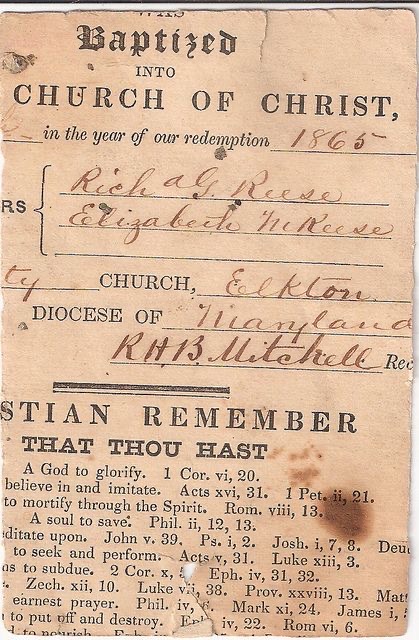 WAS
Baptized
INTO
CHURCH OF CHRIST,
in the year of our redemption 1865
RS { Rich d G Reese
Elizabeth M Reese
ty CHURCH, Elkton
DIOCESE OF Maryland
R.H.B. Mitchell Rec
STIAN REMEMBER
THAT THOU HAST
A God to glorify. 1 Cor. vi, 20.
believe in and imitate. Acts xvi, 31. 1 Pet. ii, 21.
to mortify through the Spirit. Rom. viii, 13.
A soul to save. Phil. ii, 12, 13.
ditate upon. John v. 39. Ps. i, 2. Josh. i, 7, 8. Deu
to seek and perform. Acts v, 31. Luke xiii, 3.
s to subdue. 2 Cor. x, Eph. iv, 31, 32.
Zech. xii, 10. Luke vii, 38. Prov. xxviii, 13. Matt
earnest prayer. Phil. iv, Mark xi, 24. James i,
to put off and destroy. Eph iv, 22. Rom vi, 6.